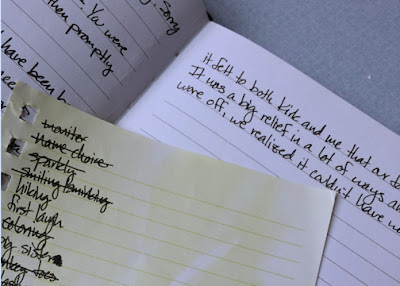 Sorry
then promptly
. You were
have been
it felt to both Kirk and me that our
It was a big relief in a lot of ways
wore off, we realized it couldn't leave
monitor
name choice
sparkly
smiling
hiking
first laugh
coloring
sister